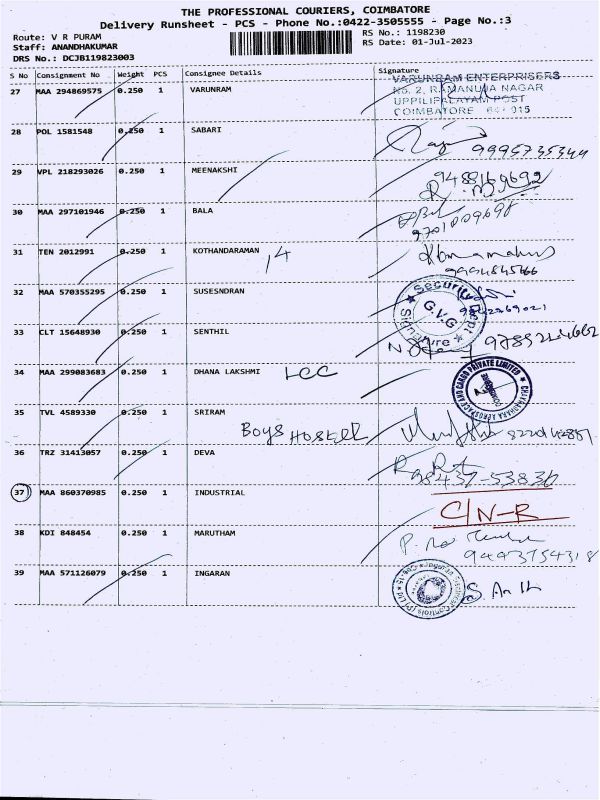 THE PROFESSIONAL COURIERS, COIMBATORE
Delivery Runsheet - PCS - Phone No.:0422-3505555 - Page No.:3
Route: V R PURAM
RS No.: 1198230
Staff: ANANDHAKUMAR
RS Date: 01-Jul-2023
DRS No.: DCJB119823003
S No Consignment No Weight PCS Consignee Details Signature
27 MAA 294869575 0.250 1 VARUNRAM
VARUNRAM ENTERPRISERS
No. 2, RAMANUJA NAGAR
UPPILIPALAYAM POST
COIMBATORE 641 015
28 POL 1581548 0.250 1 SABARI
9995735344
29 VPL 218293026 0.250 1 MEENAKSHI
9488169692
30 MAA 297101946 0.250 1 BALA
31 TEN 2012991 0.250 1 KOTHANDARAMAN
14
32 MAA 570355295 0.250 1 SUSESNDRAN
Security Dept
G.V.G
Signature
33 CLT 15648930 0.250 1 SENTHIL
34 MAA 299083683 0.250 1 DHANA LAKSHMI
35 TVL 4589330 0.250 1 SRIRAM
BOYS HOSTELL
36 TRZ 31413057 0.250 1 DEVA
98437-53830
37 MAA 860370985 0.250 1 INDUSTRIAL
C/N-R
38 KDI 848454 0.250 1 MARUTHAM
9443754318
39 MAA 571126079 0.250 1 INGARAN